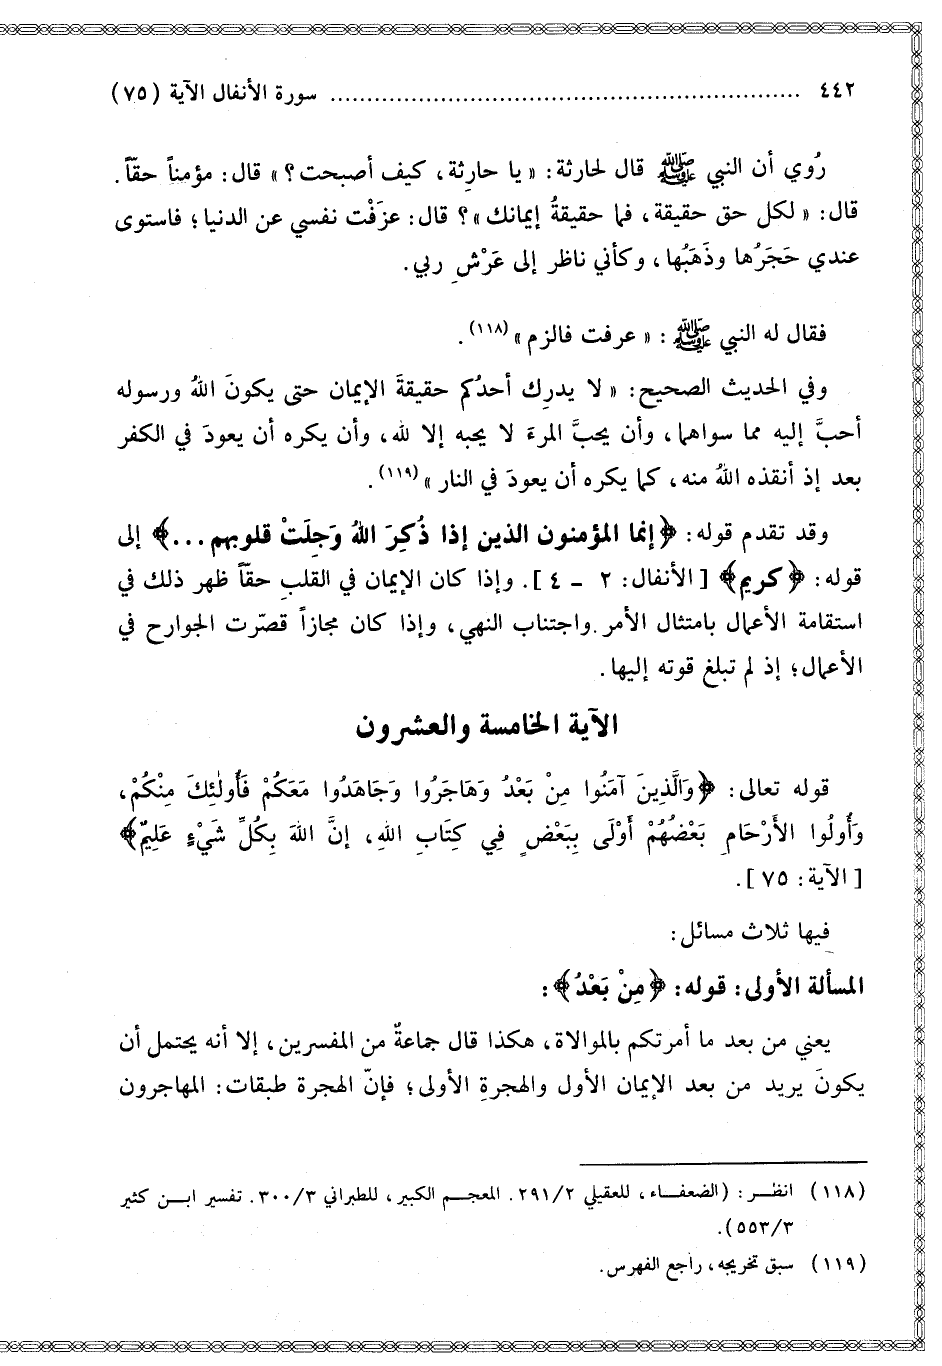 ٤٤٢ ................................................................ سورة الأنفال الآية (٧٥)
رُوي أن النبي ﷺ قال لحارثة: « يا حارِثة، كيف أصبحت؟ » قال: مؤمناً حقّاً.
قال: « لكل حق حقيقة، فما حقيقةُ إيمانك »؟ قال: عزَفْت نفسي عن الدنيا؛ فاستوى
عندي حَجَرُها وذَهَبُها، وكأني ناظر إلى عَرْشِ ربي.
فقال له النبي ﷺ: « عرفت فالزم »(١١٨).
وفي الحديث الصحيح: « لا يدرِك أحدُكم حقيقةَ الإيمان حتى يكونَ اللهُ ورسوله
أحبَّ إليه مما سواهما، وأن يحبَّ المرءَ لا يحبه إلا لله، وأن يكره أن يعودَ في الكفر
بعد إذ أنقذه اللهُ منه، كما يكره أن يعودَ في النار »(١١٩).
وقد تقدم قوله: ﴿إنما المؤمنون الذين إذا ذُكِرَ اللهُ وَجِلَتْ قلوبهم...﴾ إلى
قوله: ﴿كريم﴾ [الأنفال: ٢ - ٤]. وإذا كان الإيمان في القلبِ حقّاً ظهر ذلك في
استقامة الأعمال بامتثال الأمر واجتناب النهي، وإذا كان مجازاً قصّرت الجوارح في
الأعمال؛ إذ لم تبلغ قوته إليها.
الآية الخامسة والعشرون
قوله تعالى: ﴿وَالَّذِينَ آمَنُوا مِنْ بَعْدُ وَهَاجَرُوا وَجَاهَدُوا مَعَكُمْ فَأُولٰئِكَ مِنْكُمْ،
وَأُولُوا الأَرْحَامِ بَعْضُهُمْ أَوْلَى بِبَعْضٍ فِي كِتَابِ اللهِ، إنَّ اللهَ بِكُلِّ شَيْءٍ عَلِيمٌ﴾
[الآية: ٧٥].
فيها ثلاث مسائل:
المسألة الأولى: قوله: ﴿مِنْ بَعْدُ﴾:
يعني من بعد ما أمرتكم بالموالاة، هكذا قال جماعةٌ من المفسرين، إلا أنه يحتمل أن
يكونَ يريد من بعد الإيمان الأول والهجرةِ الأولى؛ فإنّ الهجرة طبقات: المهاجرون
(١١٨) انظر: (الضعفاء، للعقيلي ٢٩١/٢. المعجم الكبير، للطبراني ٣٠٠/٣. تفسير ابن كثير
٥٥٣/٣).
(١١٩) سبق تخريجه، راجع الفهرس.